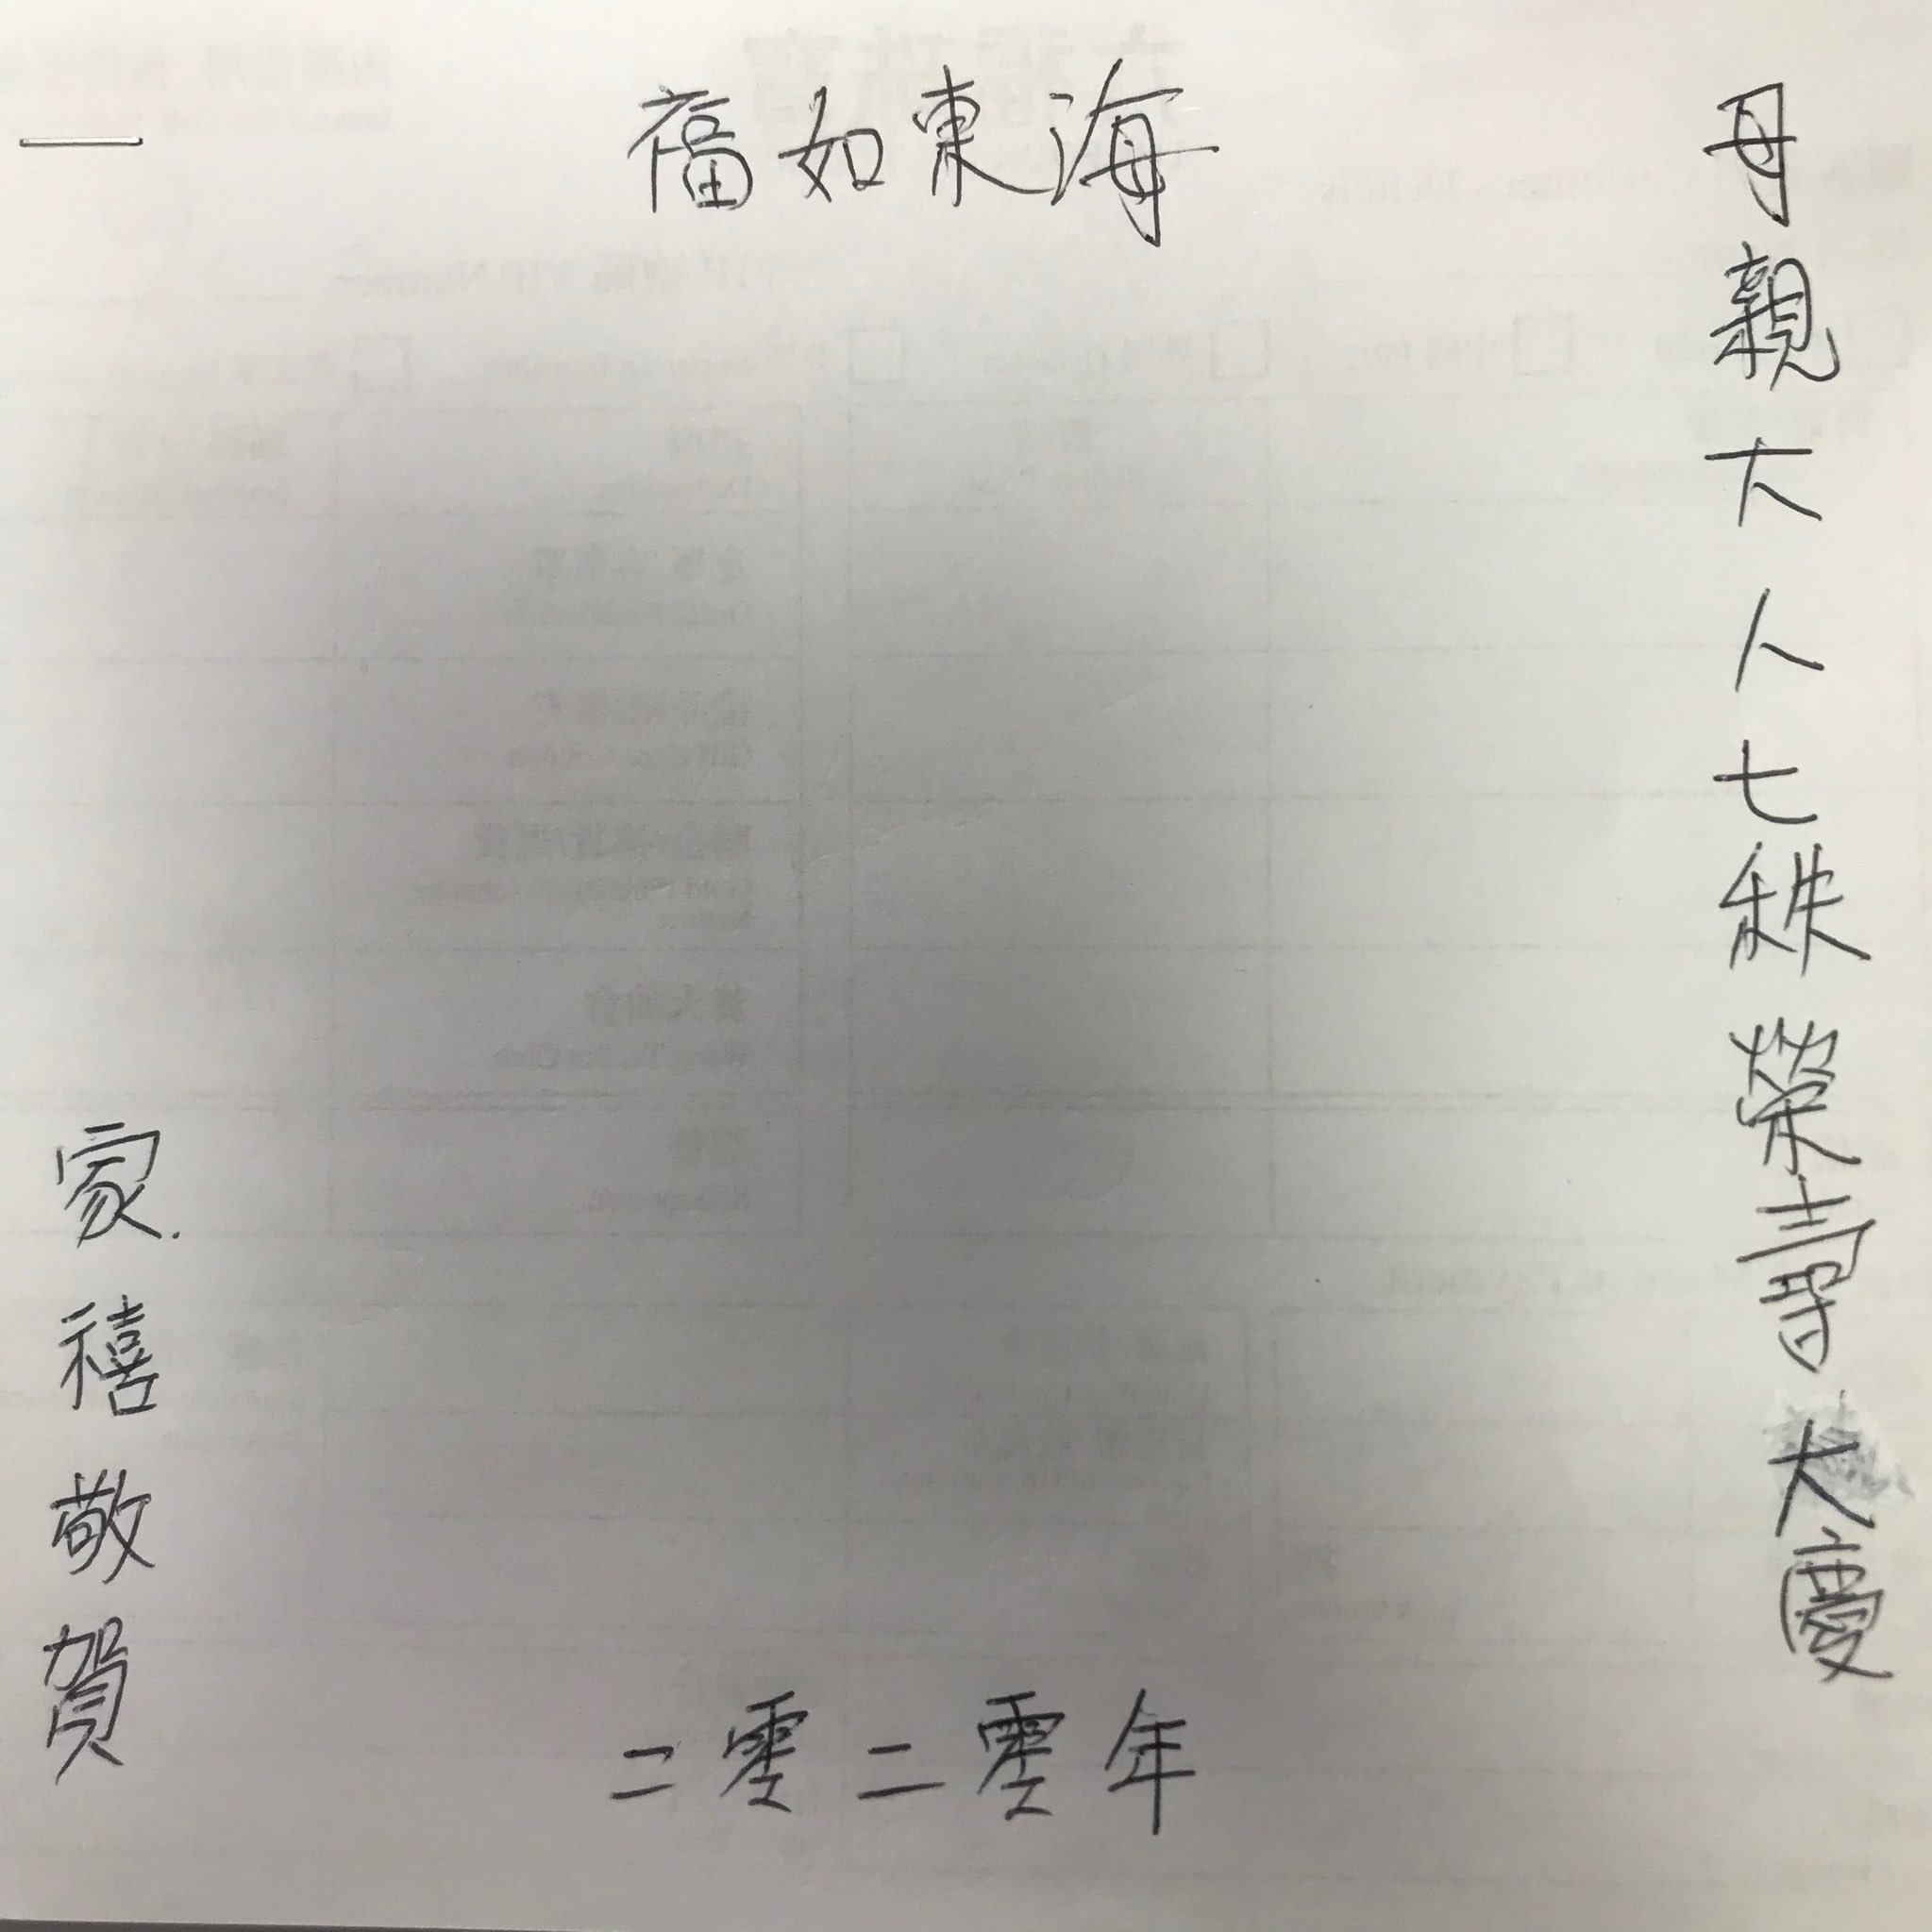 母親大人七秩榮壽大慶
福如東海
二零二零年
家禧敬賀